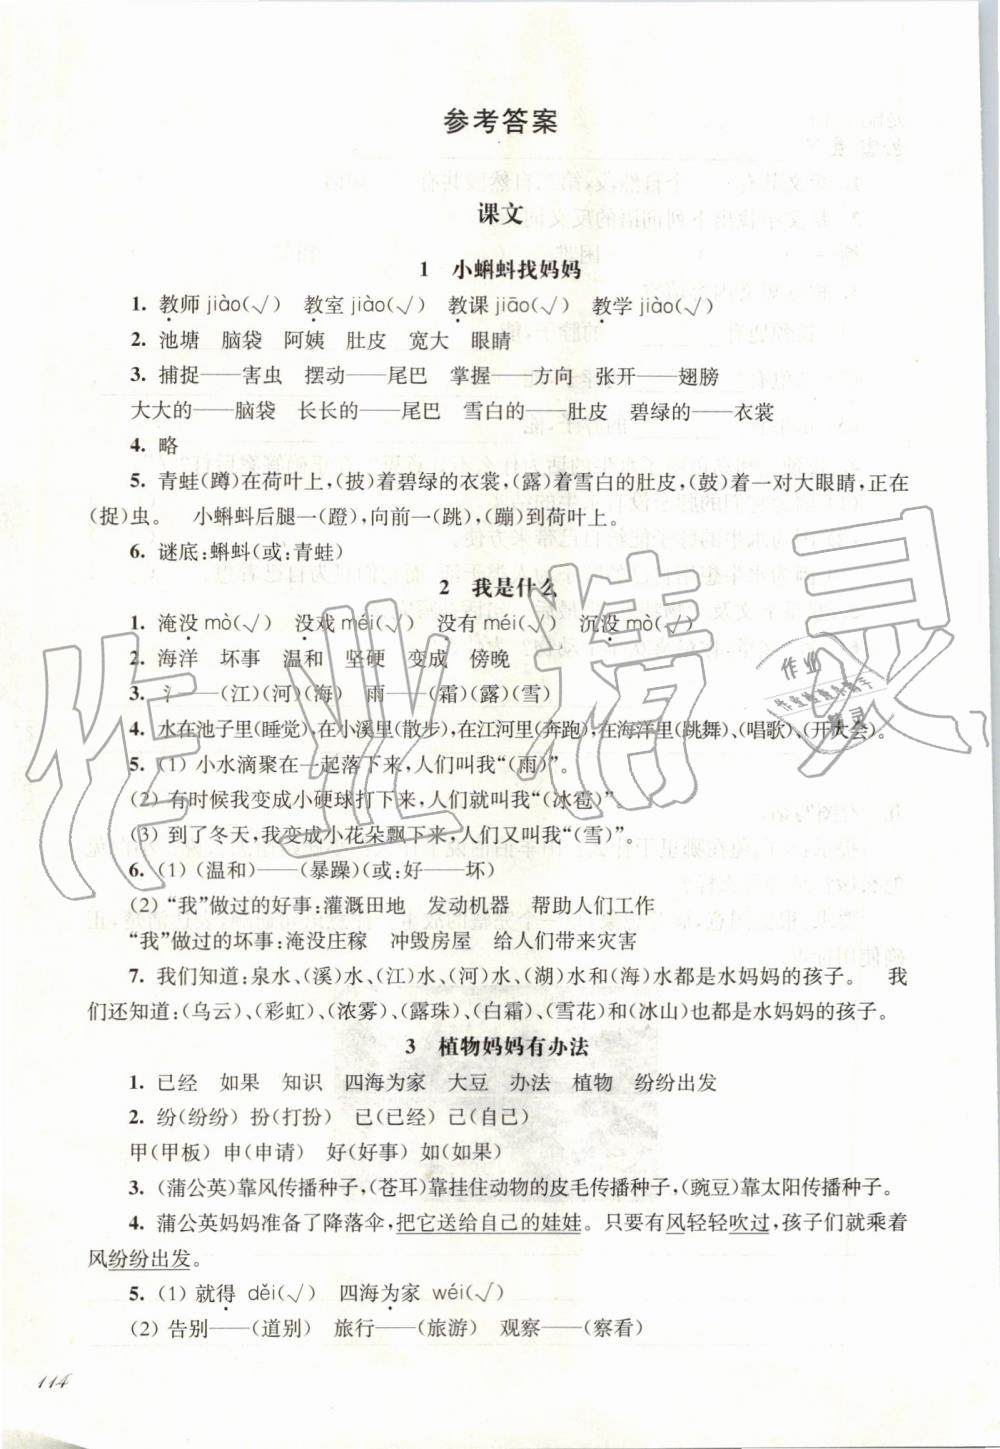 参考答案
课文
1 小蝌蚪找妈妈
1. 教师 jiào(√) 教室 jiào(√) 教课 jiāo(√) 教学 jiào(√)
2. 池塘 脑袋 阿姨 肚皮 宽大 眼睛
3. 捕捉——害虫 摆动——尾巴 掌握——方向 张开——翅膀
大大的——脑袋 长长的——尾巴 雪白的——肚皮 碧绿的——衣裳
4. 略
5. 青蛙(蹲)在荷叶上,(披)着碧绿的衣裳,(露)着雪白的肚皮,(鼓)着一对大眼睛,正在
(捉)虫。 小蝌蚪后腿一(蹬),向前一(跳),(蹦)到荷叶上。
6. 谜底:蝌蚪(或:青蛙)
2 我是什么
1. 淹没 mò(√) 没戏 méi(√) 没有 méi(√) 沉没 mò(√)
2. 海洋 坏事 温和 坚硬 变成 傍晚
3. 氵——(江)(河)(海) 雨——(霜)(露)(雪)
4. 水在池子里(睡觉),在小溪里(散步),在江河里(奔跑),在海洋里(跳舞)、(唱歌)、(开大会)。
5. (1) 小水滴聚在一起落下来,人们叫我“(雨)”。
(2) 有时候我变成小硬球打下来,人们就叫我“(冰雹)”。
(3) 到了冬天,我变成小花朵飘下来,人们又叫我“(雪)”。
6. (1) (温和)——(暴躁)(或:好——坏)
(2) “我”做过的好事:灌溉田地 发动机器 帮助人们工作
“我”做过的坏事:淹没庄稼 冲毁房屋 给人们带来灾害
7. 我们知道:泉水、(溪)水、(江)水、(河)水、(湖)水和(海)水都是水妈妈的孩子。 我
们还知道:(乌云)、(彩虹)、(浓雾)、(露珠)、(白霜)、(雪花)和(冰山)也都是水妈妈的孩子。
3 植物妈妈有办法
1. 已经 如果 知识 四海为家 大豆 办法 植物 纷纷出发
2. 纷(纷纷) 扮(打扮) 已(已经) 己(自己)
甲(甲板) 申(申请) 好(好事) 如(如果)
3. (蒲公英)靠风传播种子,(苍耳)靠挂住动物的皮毛传播种子,(豌豆)靠太阳传播种子。
4. 蒲公英妈妈准备了降落伞,把它送给自己的娃娃。只要有风轻轻吹过,孩子们就乘着
风纷纷出发。
5. (1) 就得 děi(√) 四海为家 wéi(√)
(2) 告别——(道别) 旅行——(旅游) 观察——(察看)
114
作业精灵